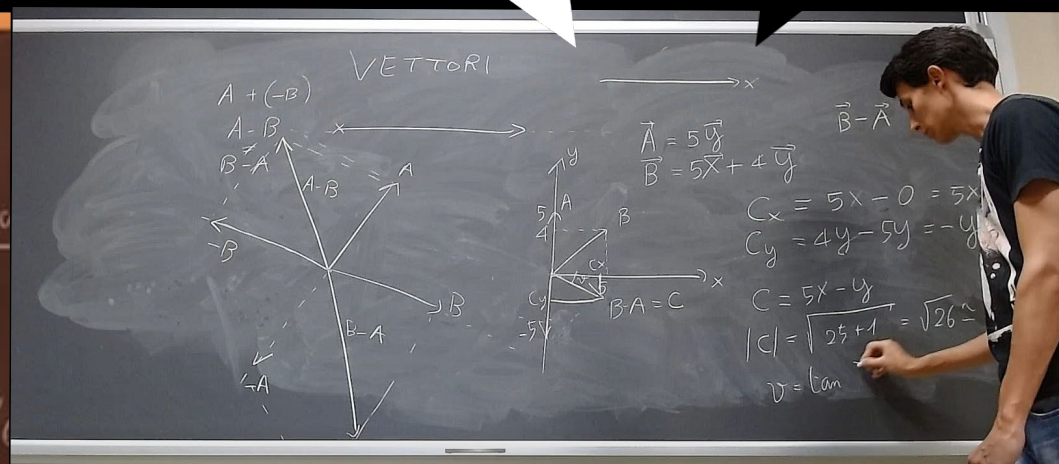 VETTORI
A + (-B)
A - B
B - A
A-B
A
-B
B
B-A
-A
x
y
5
A
4
B
Cx
x
Cy
B-A = C
-5
A⃗ = 5y⃗
B⃗ = 5x⃗ + 4y⃗
B⃗ - A⃗
Cx = 5x - 0 = 5x
Cy = 4y - 5y = -y
C = 5x - y
|C| = √25+1 = √26 =
v = tan